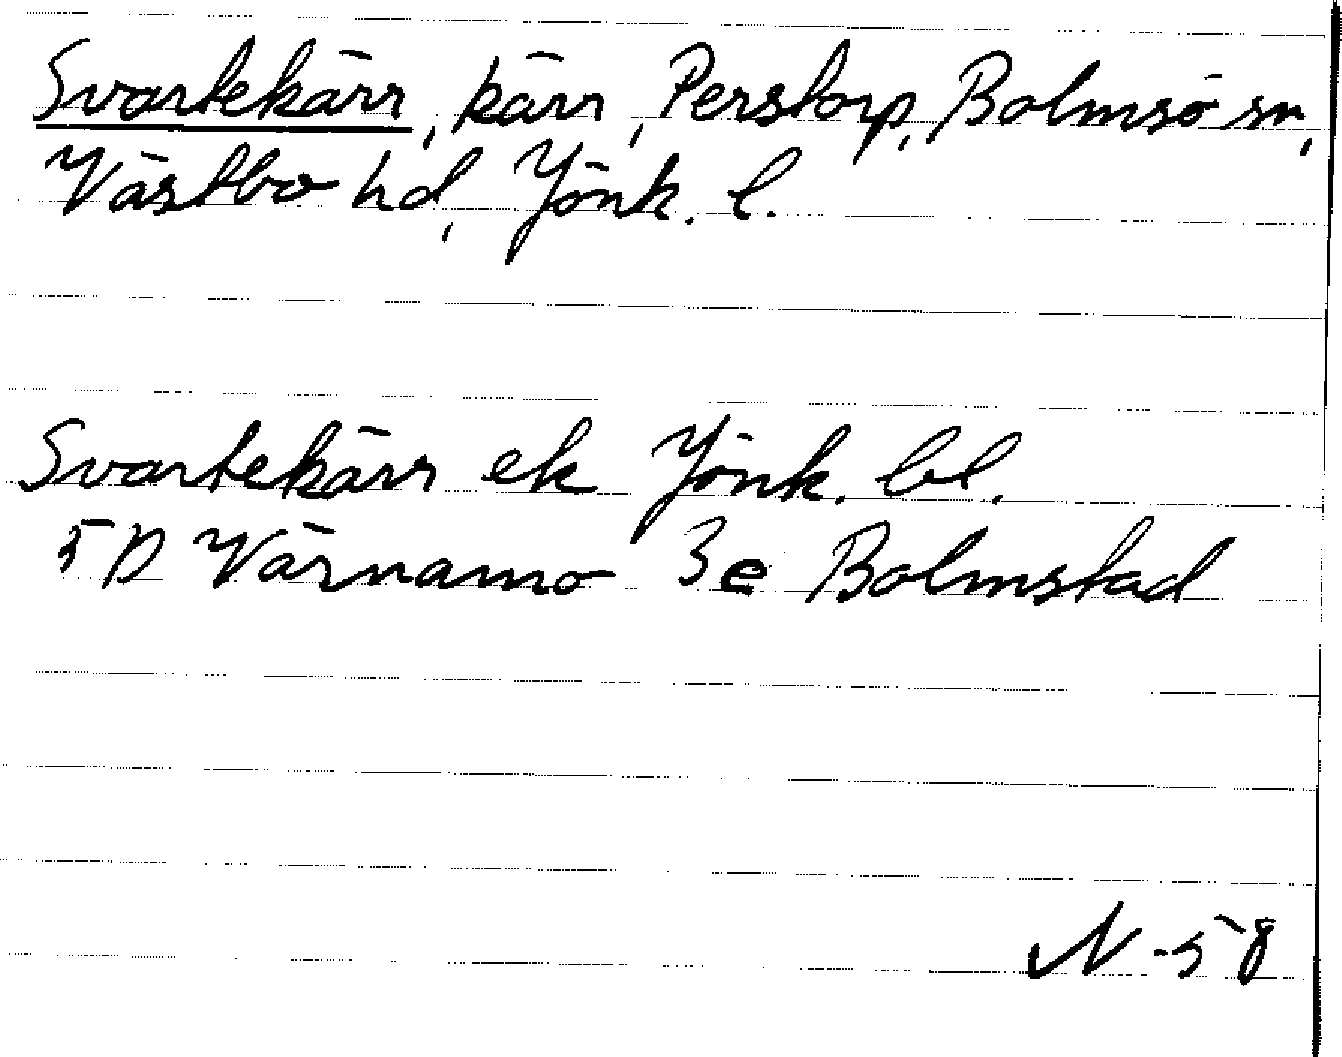 Svartekärr, kärr, Perstorp, Bolmsö sn,
Västbo hd, Jönk. l.
Svartekärr ek Jönk. bl.
5D Värnamo 3e Bolmstad
N-58